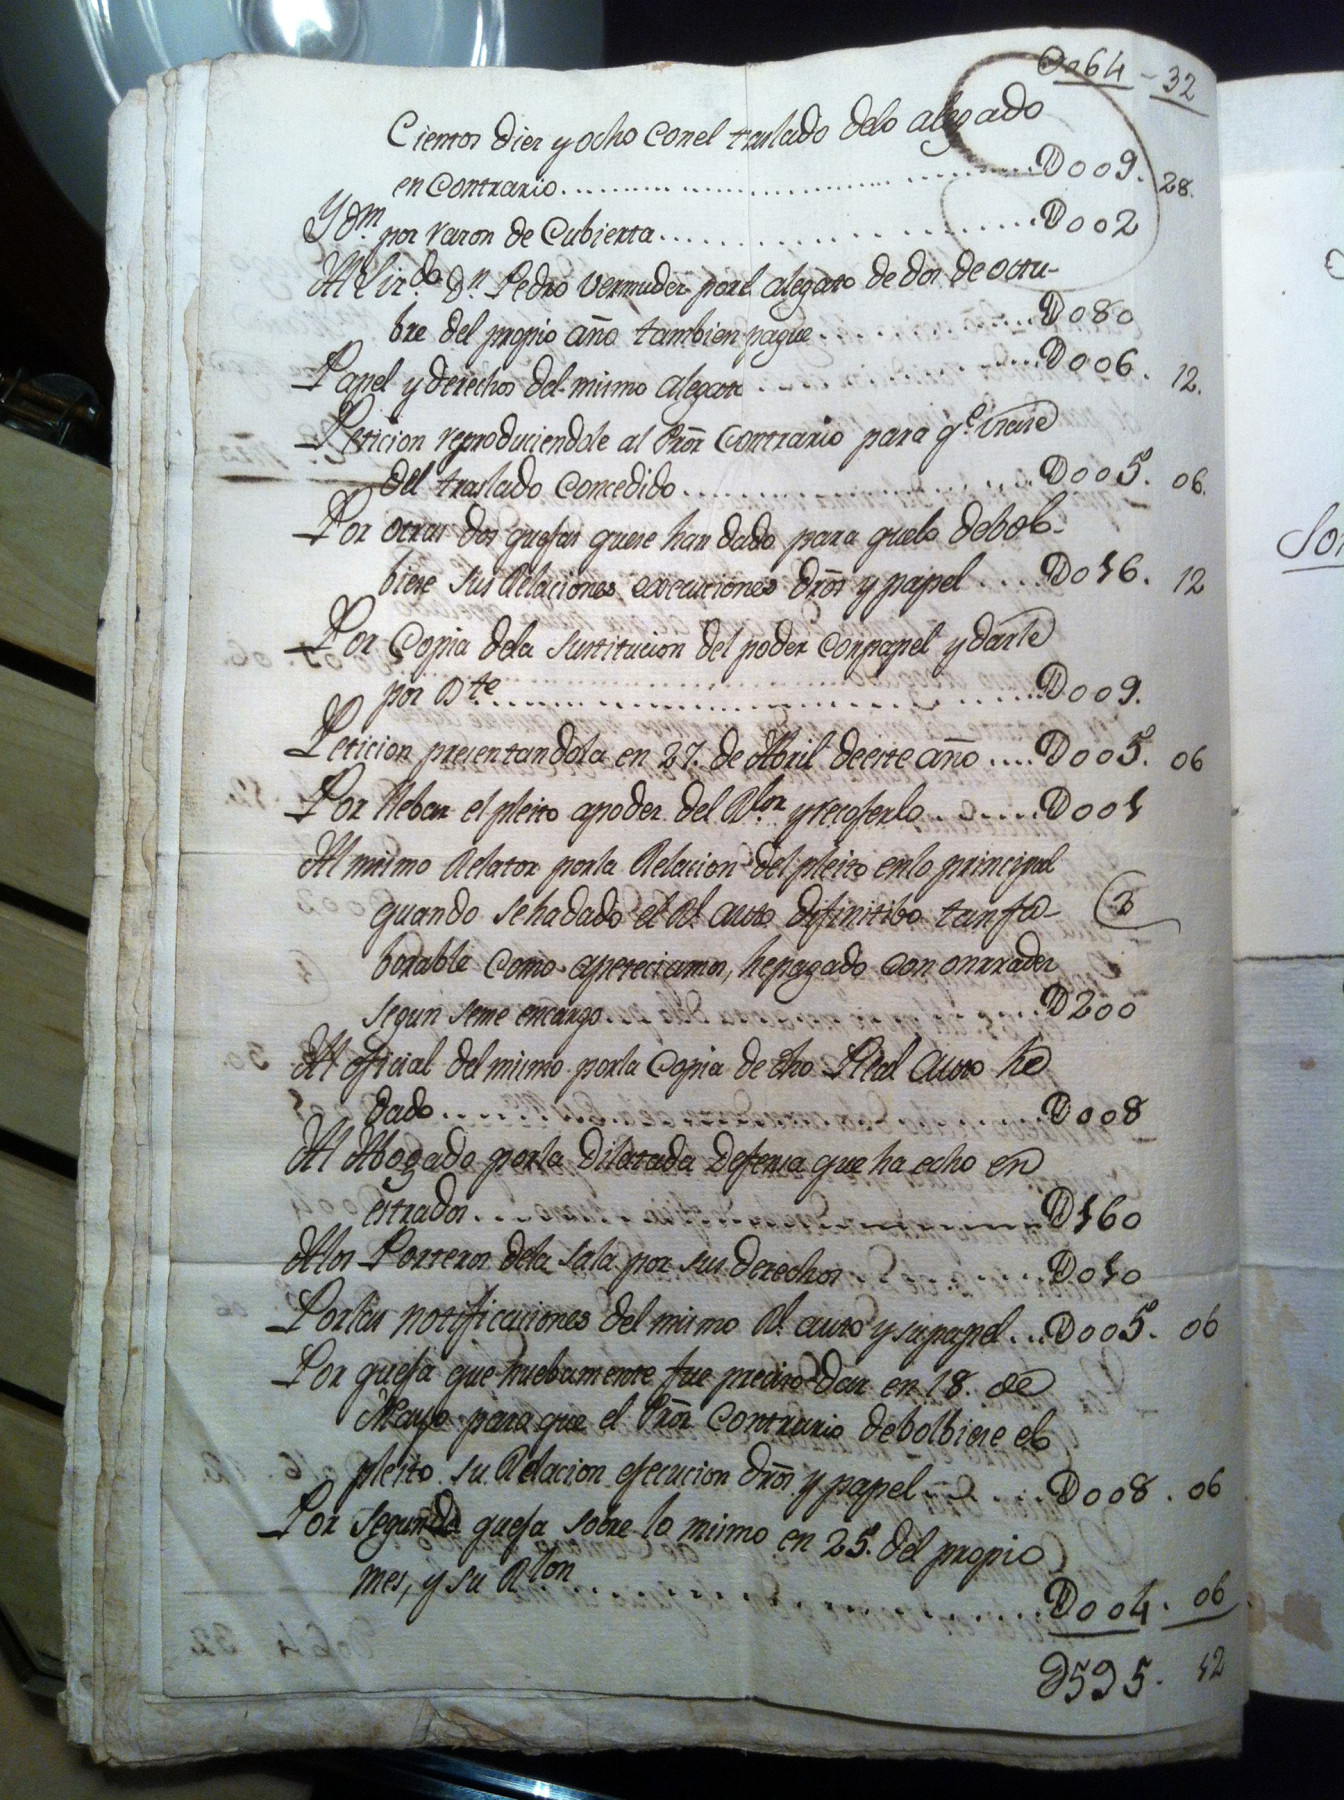 D064 - 32
Cientos diez y ocho con el traslado delo alegado
en Contrario.......... D009. 28.
Ydm. por razon de Cubierta.......... D002
Al Lizdo. Dn. Pedro Vermudez por el alegato de dos de octu-
bre del propio año tambien pague.......... D080
Papel y derechos del mismo alegato.......... D006. 12.
Peticion reproduciendole al Prōr Contrario para qe. usase
del traslado Concedido.......... D005. 06.
Por otras dos quejas quese han dado para quelo debol-
biese sus Relaciones execuciones drōs y papel.... D016. 12
Por Copia dela sustitucion del poder conpapel y darle
por Bte.......... D009.
Peticion presentandola en 27. de Abril deeste año.... D005. 06
Por llebar el pleito apoder del Rlor y recojerlo....... D001
Al mismo Relator porla Relacion del pleito enlo principal
quando sehadado el Rl. auto difinitibo tan fa-
borable como apeteciamos, hepagado con
segun seme encargo.... D200
Al oficial del mismo porla Copia de dho Real Auto he
dado.......... D008
Al Abogado porla dilatada defensa que ha echo en
estrados.......... D160
Alos Porteros dela sala por sus derechos.... D010
Por las notificaciones del mismo Rl. auto y su papel... D005. 06
Por queja que nuebamente fue preciso dar en 18. de
Mayo para que el Prōr Contrario debolbiese el
pleito su Relacion ejecucion drōs. y papel.... D008. 06
Por segunda queja sobre lo mismo en 25. del propio
mes, y su Rlon.......... D004. 06
D595. 12